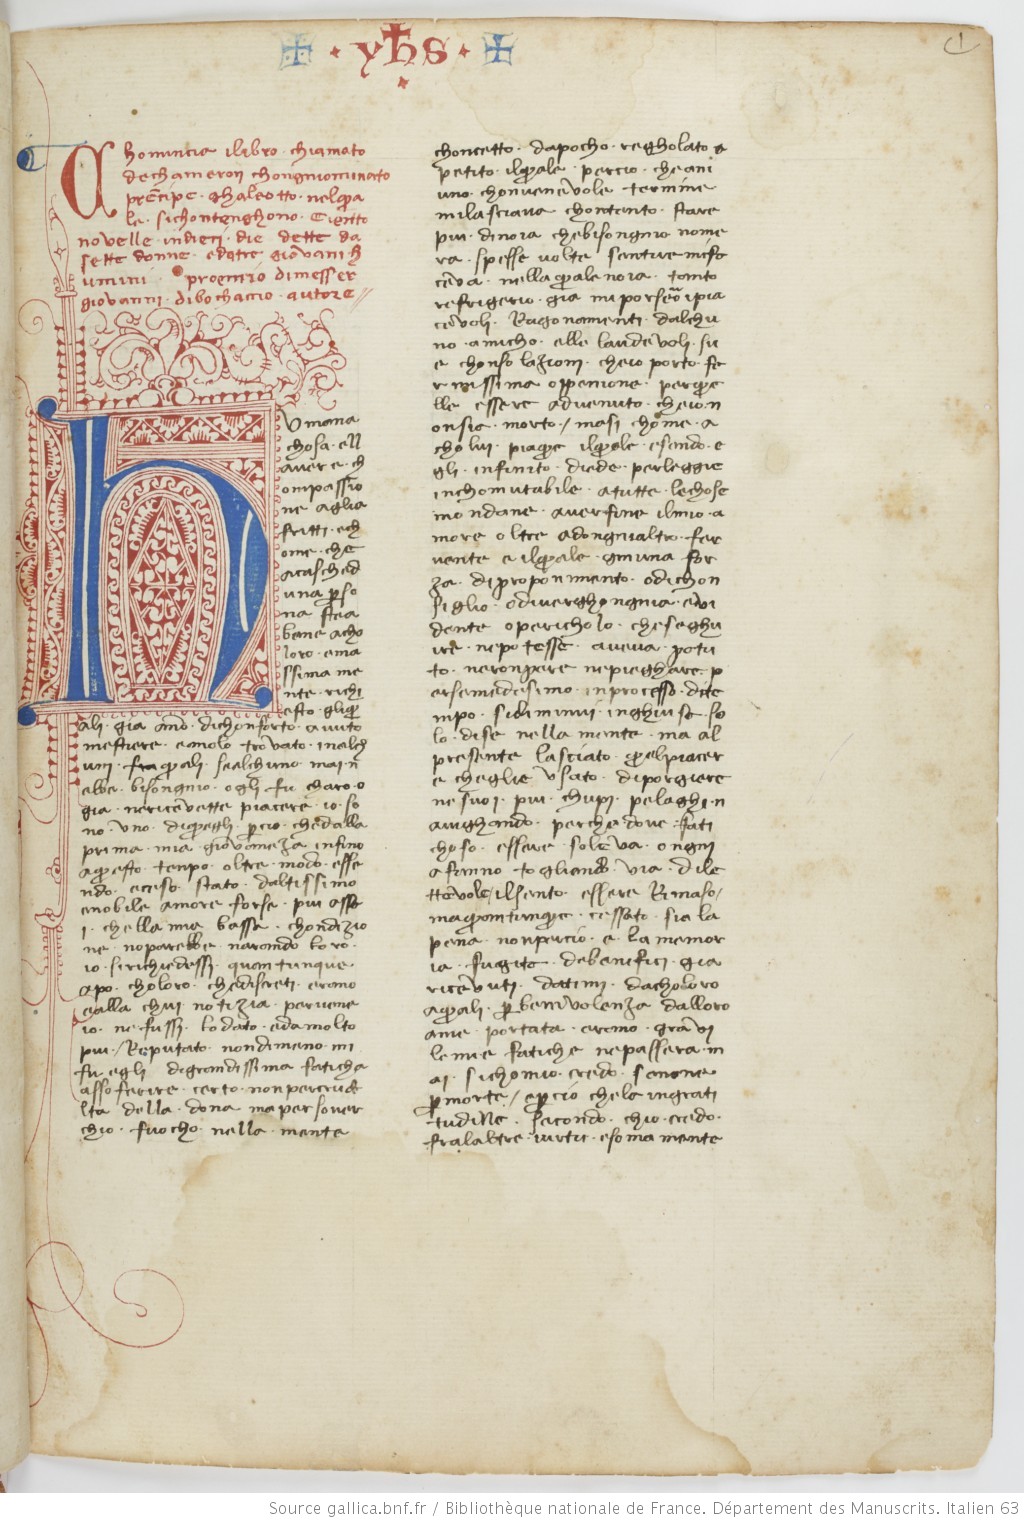 yhs
1
A
honuncia ilibro · chiamato
dechameron chongniominato
prēcipe · ghaleotto · nelqua
le · sichontenghono · Ciento
novelle · indieci · die dette da
sette donne · edatre giovani h
uomini · proemio dimesser
giovanni · dibochaccio · autore
H
Vmana
chosa · ell
avere · ch
ompassio
ne aglia
fritti · ech
ome · che
acasched
una perso
na · stea
bene acho
loro · ema
ssima me
nte · richi
esto · gliqu
ali · gia ano · dichonforto · avuto
mestiere · eanolo · trovato · inalch
uni · fra quali · sealchuno · mai · n
ebbe · bisongnio · ogli · fu charo · o
gia · nericevette piacere · io · so
no · uno · diquegli · percio · chedalla
prima · mia · giovaneza infino
aquesto · tenpo · oltre · modo · esse
ndo · aceso · stato · daltissimo
enobile · amore · forse · piu · asse
i · chella mia · bassa · chondizio
ne · noparebbe · narando loro ·
io · sirichiedessi · quantunque
apo · choloro · chediscreti · erano
ealla chui · notizia · pervene
io · ne fussi · lodato · eda molto
piu / Reputato · nondimeno · mi
fu egli · digrandissima · faticha
assoferire · certo · non percrude
lta · della · dona · ma persover
chio · fuocho · nella · mente
choncetto · dapocho · regholato a
petito · ilquale · percio · che ani
uno · chonvenevole · termine
milasciava · chontento · stare
piu · dinoia · chebisongnio nome
ra · spesse · volte · sentire mifa
ceva · nella quale noia · tanto
refrigerio · gia · miporseno ipia
cevoli · Ragonamenti · dalchu
no · amicho · elle laudevoli · su
e · chonsolazioni · cheio porto · fe
rmissima openione · perque
lle · essere · advenuto · cheio n
onsia · morto / masi · chome · a
cholui · piaque · ilquale · esendo · e
gli · infinito · diede · perleggie
inchomutabile · atutte · lechose
mondane · averfine ilmio · a
more · oltre · adongnialtro · fer
vente · e ilquale · gniuna · for
za · diproponimento · odichon
siglio · odiverghongnia · evi
dente · opericholo · cheseghu
ire · nepotesse · aveva · potu
to · neronpare · nepieghare · p
ersemedesimo · inprocesso · dite
mpo · sidiminui · inghuisa · so
lo · dise · nella mente · ma al
presente · lasciato · quelpiacer
e · cheglie · usato · diporgiere
nesuoi · piu · chupi · pelaghi · n
avighando · perche dove · fati
choso · essere · soleva · ongni
afanno · togliando · via · dile
ttevole / ilsento · essere · Rimaso /
maquantunque · cessato · sia la
pena · nonpercio · e · la memor
ia · fugita · debenifici · gia
ricevuti · datimi · dacholoro
aquali · per benivolenza · dalloro
ame · portata · erano · gravi
le mie · fatiche · nepassera · m
ai · sichomio · credo · senone
per morte / epercio chela ingrati
tudine · secondo · chio · credo ·
fralaltre · virtu · esomamente
Source gallica.bnf.fr / Bibliothèque nationale de France. Département des Manuscrits. Italien 63